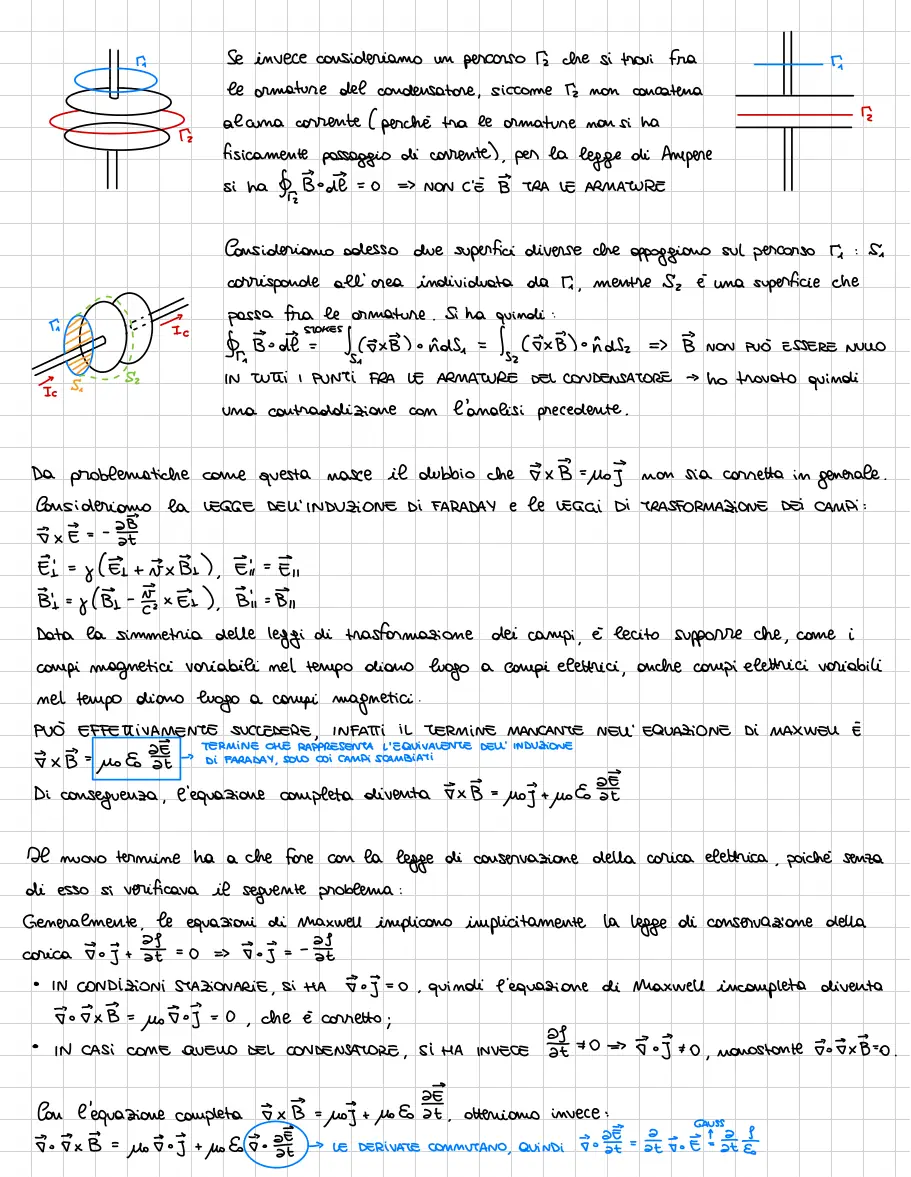 Se invece consideriamo un percorso Γ₂ che si trovi fra
le armature del condensatore, siccome Γ₂ non concatena
alcuna corrente (perché tra le armature non si ha
fisicamente passaggio di corrente), per la legge di Ampere
si ha ∮_Γ₂ B⃗∘dl⃗ = 0 => NON C'È B⃗ TRA LE ARMATURE
Γ₁
Γ₂
Γ₁
Γ₂
Consideriamo adesso due superfici diverse che appoggiano sul percorso Γ₁ : S₁
corrisponde all'area individuata da Γ₁, mentre S₂ è una superficie che
passa fra le armature. Si ha quindi:
∮_Γ₁ B⃗∘dl⃗ = STOKES ∫_S₁ (∇⃗×B⃗)∘n̂dS₁ = ∫_S₂ (∇⃗×B⃗)∘n̂dS₂ => B⃗ NON PUÒ ESSERE NULLO
IN TUTTI I PUNTI FRA LE ARMATURE DEL CONDENSATORE → ho trovato quindi
una contraddizione con l'analisi precedente.
Γ₁
I_C
S₁
S₂
I_C
Da problematiche come questa nasce il dubbio che ∇⃗×B⃗ = μ₀J⃗ non sia corretta in generale.
Consideriamo la LEGGE DELL'INDUZIONE DI FARADAY e le LEGGI DI TRASFORMAZIONE DEI CAMPI:
∇⃗×E⃗ = - ∂B⃗/∂t
E⃗'⊥ = γ(E⃗⊥ + v⃗×B⃗⊥), E⃗'∥ = E⃗∥
B⃗'⊥ = γ(B⃗⊥ - v⃗/c² × E⃗⊥), B⃗'∥ = B⃗∥
Data la simmetria delle leggi di trasformazione dei campi, è lecito supporre che, come i
campi magnetici variabili nel tempo diano luogo a campi elettrici, anche campi elettrici variabili
nel tempo diano luogo a campi magnetici.
PUÒ EFFETTIVAMENTE SUCCEDERE, INFATTI IL TERMINE MANCANTE NELL'EQUAZIONE DI MAXWELL È
∇⃗×B⃗ = μ₀ε₀ ∂E⃗/∂t → TERMINE CHE RAPPRESENTA L'EQUIVALENTE DELL'INDUZIONE
DI FARADAY, SOLO COI CAMPI SCAMBIATI
Di conseguenza, l'equazione completa diventa ∇⃗×B⃗ = μ₀J⃗ + μ₀ε₀ ∂E⃗/∂t
Il nuovo termine ha a che fare con la legge di conservazione della carica elettrica, poiché senza
di esso si verificava il seguente problema:
Generalmente, le equazioni di Maxwell implicono implicitamente la legge di conservazione della
carica ∇⃗∘J⃗ + ∂ρ/∂t = 0 => ∇⃗∘J⃗ = - ∂ρ/∂t
• IN CONDIZIONI STAZIONARIE, SI HA ∇⃗∘J⃗ = 0, quindi l'equazione di Maxwell incompleta diventa
∇⃗∘∇⃗×B⃗ = μ₀∇⃗∘J⃗ = 0, che è corretto;
• IN CASI COME QUELLO DEL CONDENSATORE, SI HA INVECE ∂ρ/∂t ≠ 0 => ∇⃗∘J⃗ ≠ 0, nonostante ∇⃗∘∇⃗×B⃗=0.
Con l'equazione completa ∇⃗×B⃗ = μ₀J⃗ + μ₀ε₀ ∂E⃗/∂t, otteniamo invece:
∇⃗∘∇⃗×B⃗ = μ₀∇⃗∘J⃗ + μ₀ε₀ ∇⃗∘∂E⃗/∂t → LE DERIVATE COMMUTANO, QUINDI ∇⃗∘∂E⃗/∂t = ∂/∂t ∇⃗∘E⃗ = ∂/∂t ρ/ε₀
GAUSS